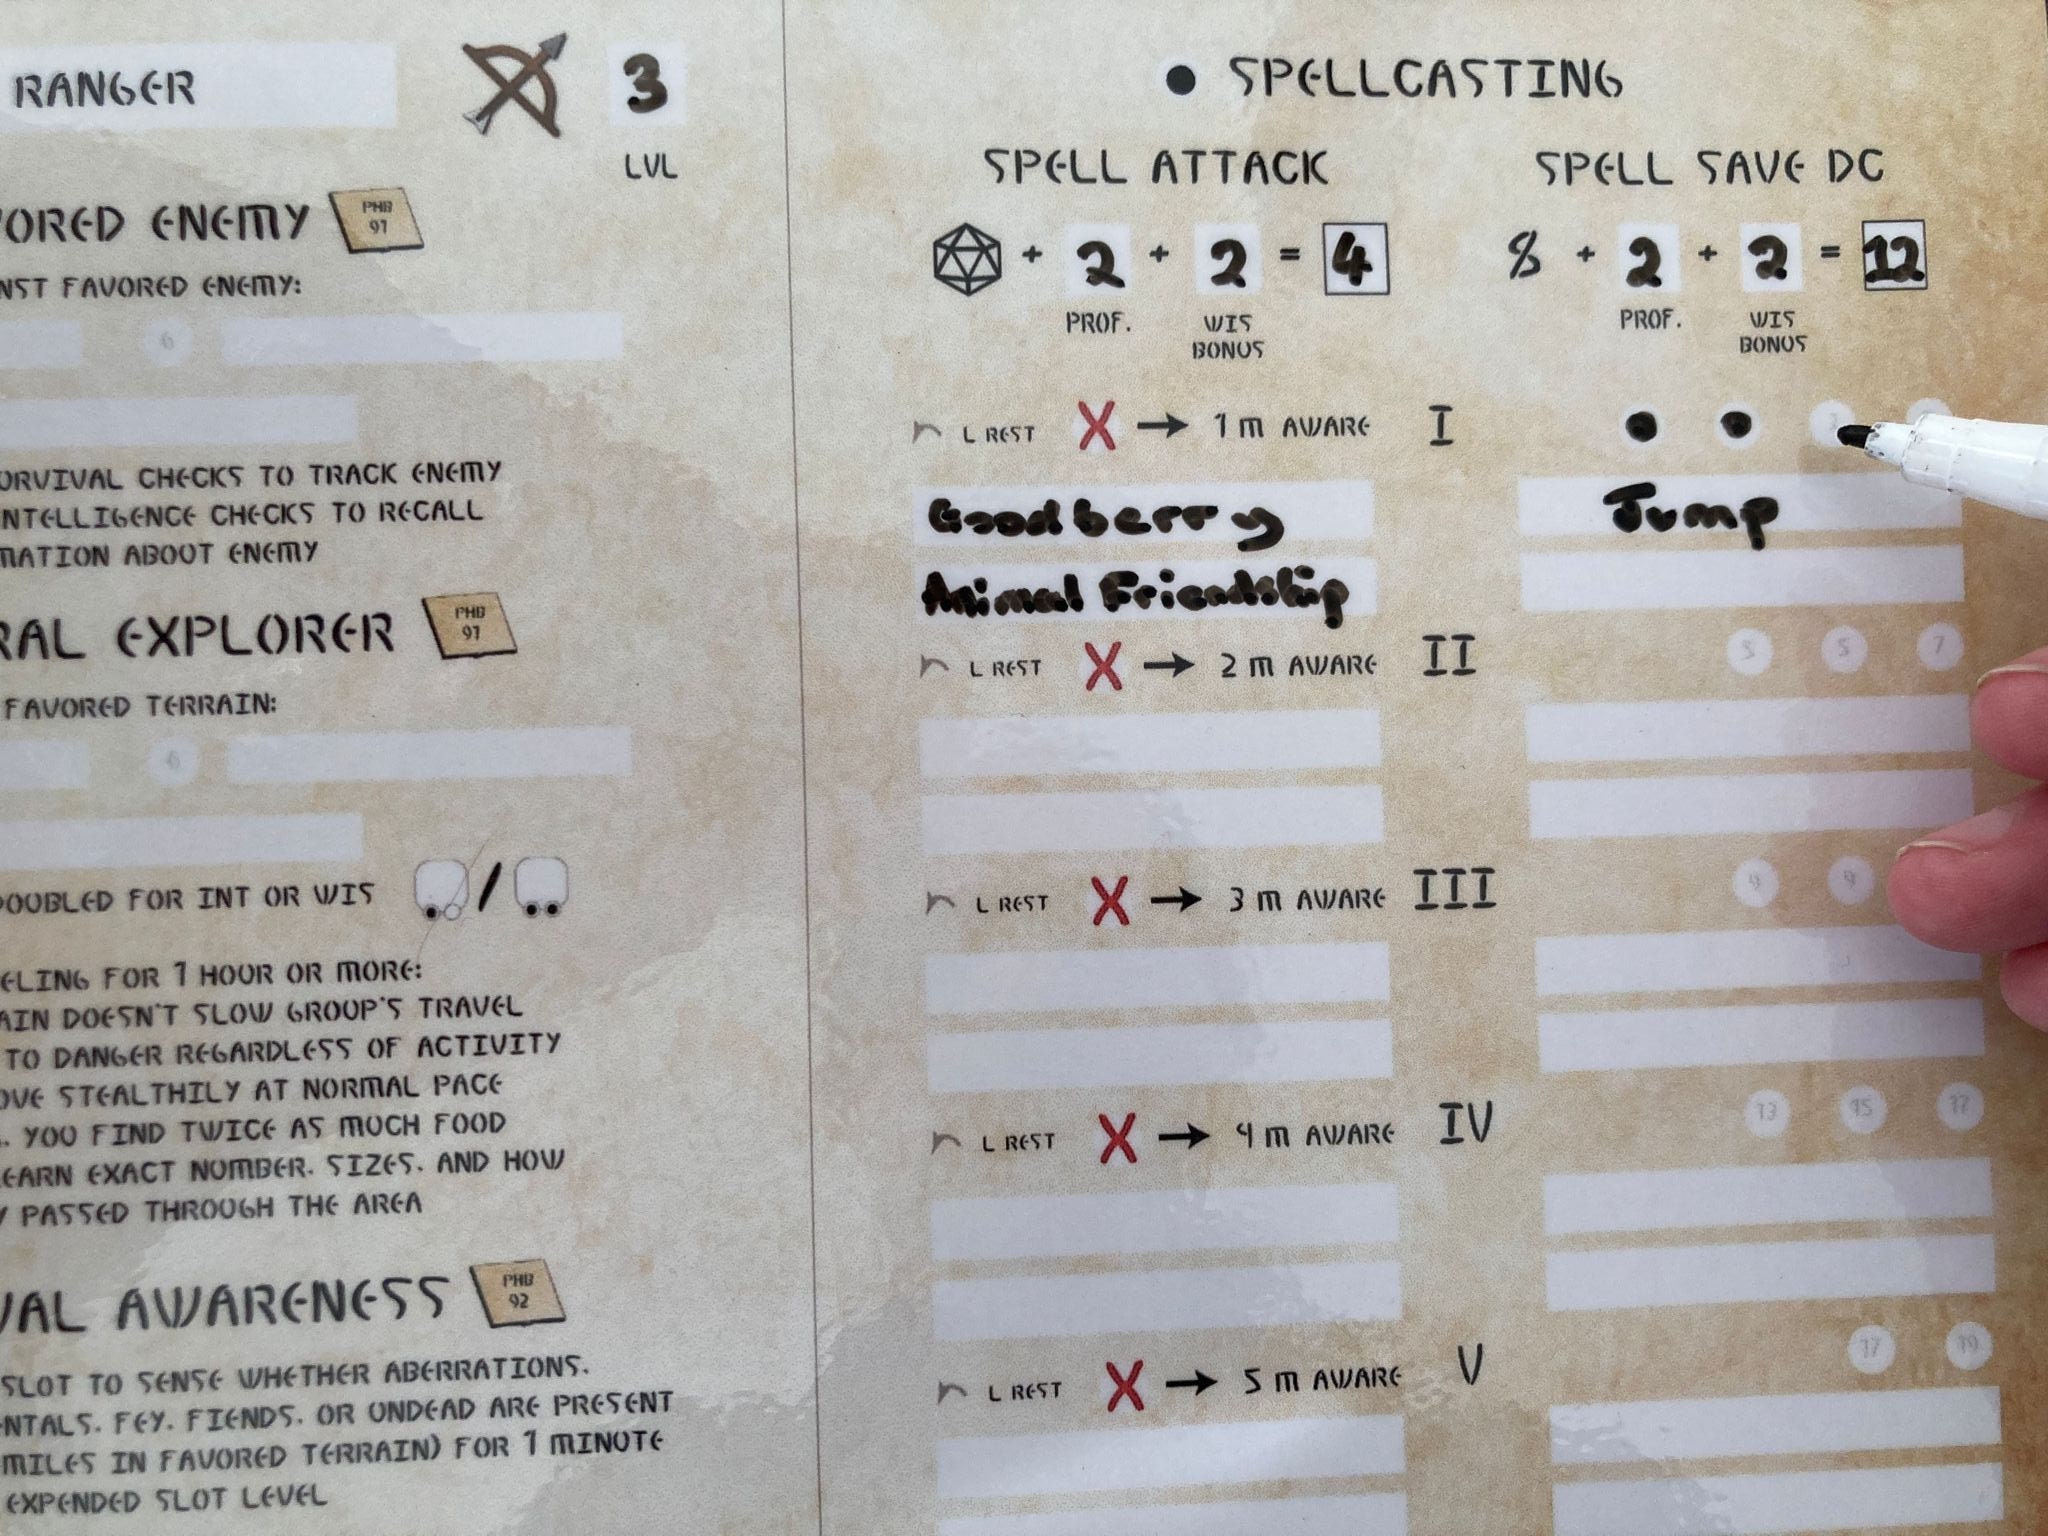 RANGER
3
LVL
ORED ENEMY
PHB
97
NST FAVORED ENEMY:
6
SURVIVAL CHECKS TO TRACK ENEMY
INTELLIGENCE CHECKS TO RECALL
MATION ABOUT ENEMY
RAL EXPLORER
PHB
91
FAVORED TERRAIN:
6
DOUBLED FOR INT OR WIS
/
ELING FOR 1 HOUR OR MORE:
AIN DOESN'T SLOW GROUP'S TRAVEL
TO DANGER REGARDLESS OF ACTIVITY
OVE STEALTHILY AT NORMAL PACE
. YOU FIND TWICE AS MUCH FOOD
EARN EXACT NUMBER, SIZES, AND HOW
PASSED THROUGH THE AREA
VAL AWARENESS
PHB
92
SLOT TO SENSE WHETHER ABERRATIONS,
ENTALS, FEY, FIENDS, OR UNDEAD ARE PRESENT
MILES IN FAVORED TERRAIN) FOR 1 MINUTE
EXPENDED SLOT LEVEL
• SPELLCASTING
SPELL ATTACK
+ 2 + 2 = 4
PROF. WIS
BONUS
SPELL SAVE DC
8 + 2 + 2 = 12
PROF. WIS
BONUS
L REST X → 1 M AWARE I
Goodberry Jump
Animal Friendship
L REST X → 2 M AWARE II 5 5 7
L REST X → 3 M AWARE III 9 9
L REST X → 4 M AWARE IV 13 15 17
L REST X → 5 M AWARE V 17 19